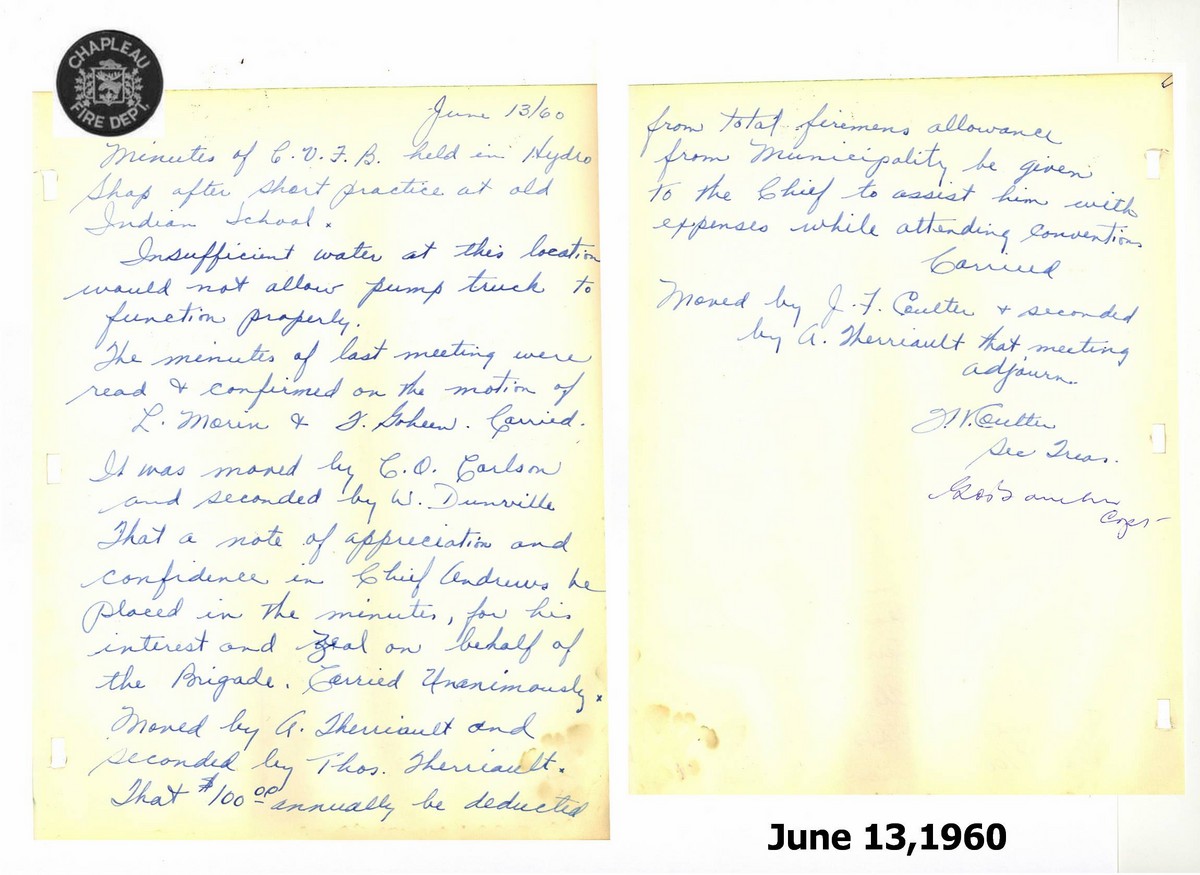 CHAPLEAU
FIRE DEPT.
June 13/60
Minutes of C.V.F.B. held in Hydro
Shop after short practice at old
Indian School.
Insufficient water at this location
would not allow pump truck to
function properly.
The minutes of last meeting were
read & confirmed on the motion of
L. Morin & F. Goheen. Carried.
It was moved by C.O. Carlson
and seconded by W. Dunville
That a note of appreciation and
confidence in Chief Andrews be
placed in the minutes, for his
interest and zeal on behalf of
the Brigade. Carried Unanimously.
Moved by A. Therriault and
seconded by Thos. Therriault.
That $100 00 annually be deducted
from total firemens allowance
from Municipality be given
to the Chief to assist him with
expenses while attending conventions
Carried
Moved by J. F. Coulter & seconded
by A. Therriault that meeting
adjourn.
Coulter
Sec Treas.
June 13,1960